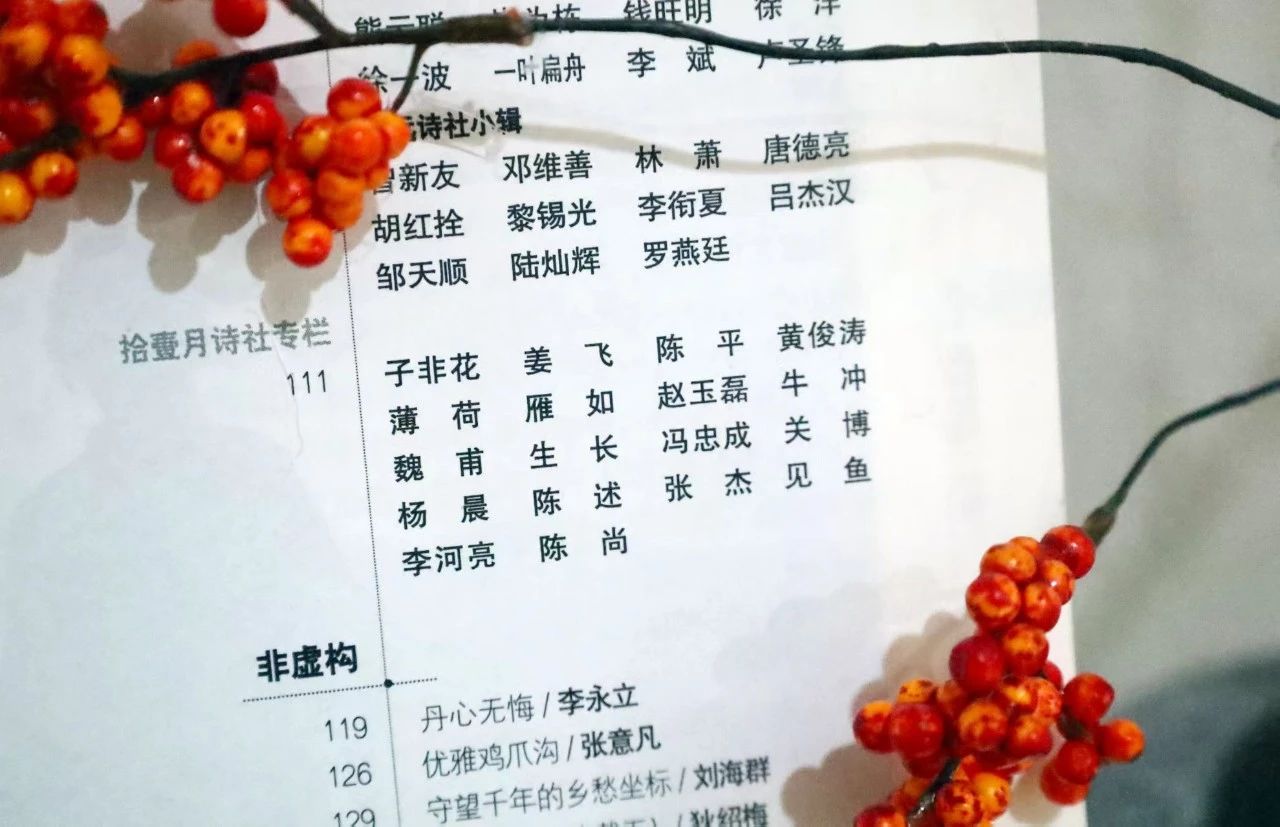 钱旺明 徐 洋
徐一波 一叶扁舟 李 斌 卢圣锋
诗社小辑
曾新友 邓维善 林 萧 唐德亮
胡红拴 黎锡光 李衔夏 吕杰汉
邹天顺 陆灿辉 罗燕廷
拾壹月诗社专栏
111
子非花 姜 飞 陈 平 黄俊涛
薄 荷 雁 如 赵玉磊 牛 冲
魏 甫 生 长 冯忠成 关 博
杨 晨 陈 述 张 杰 见 鱼
李河亮 陈 尚
非虚构
119 丹心无悔 / 李永立
126 优雅鸡爪沟 / 张意凡
129 守望千年的乡愁坐标 / 刘海群
/ 狄绍梅